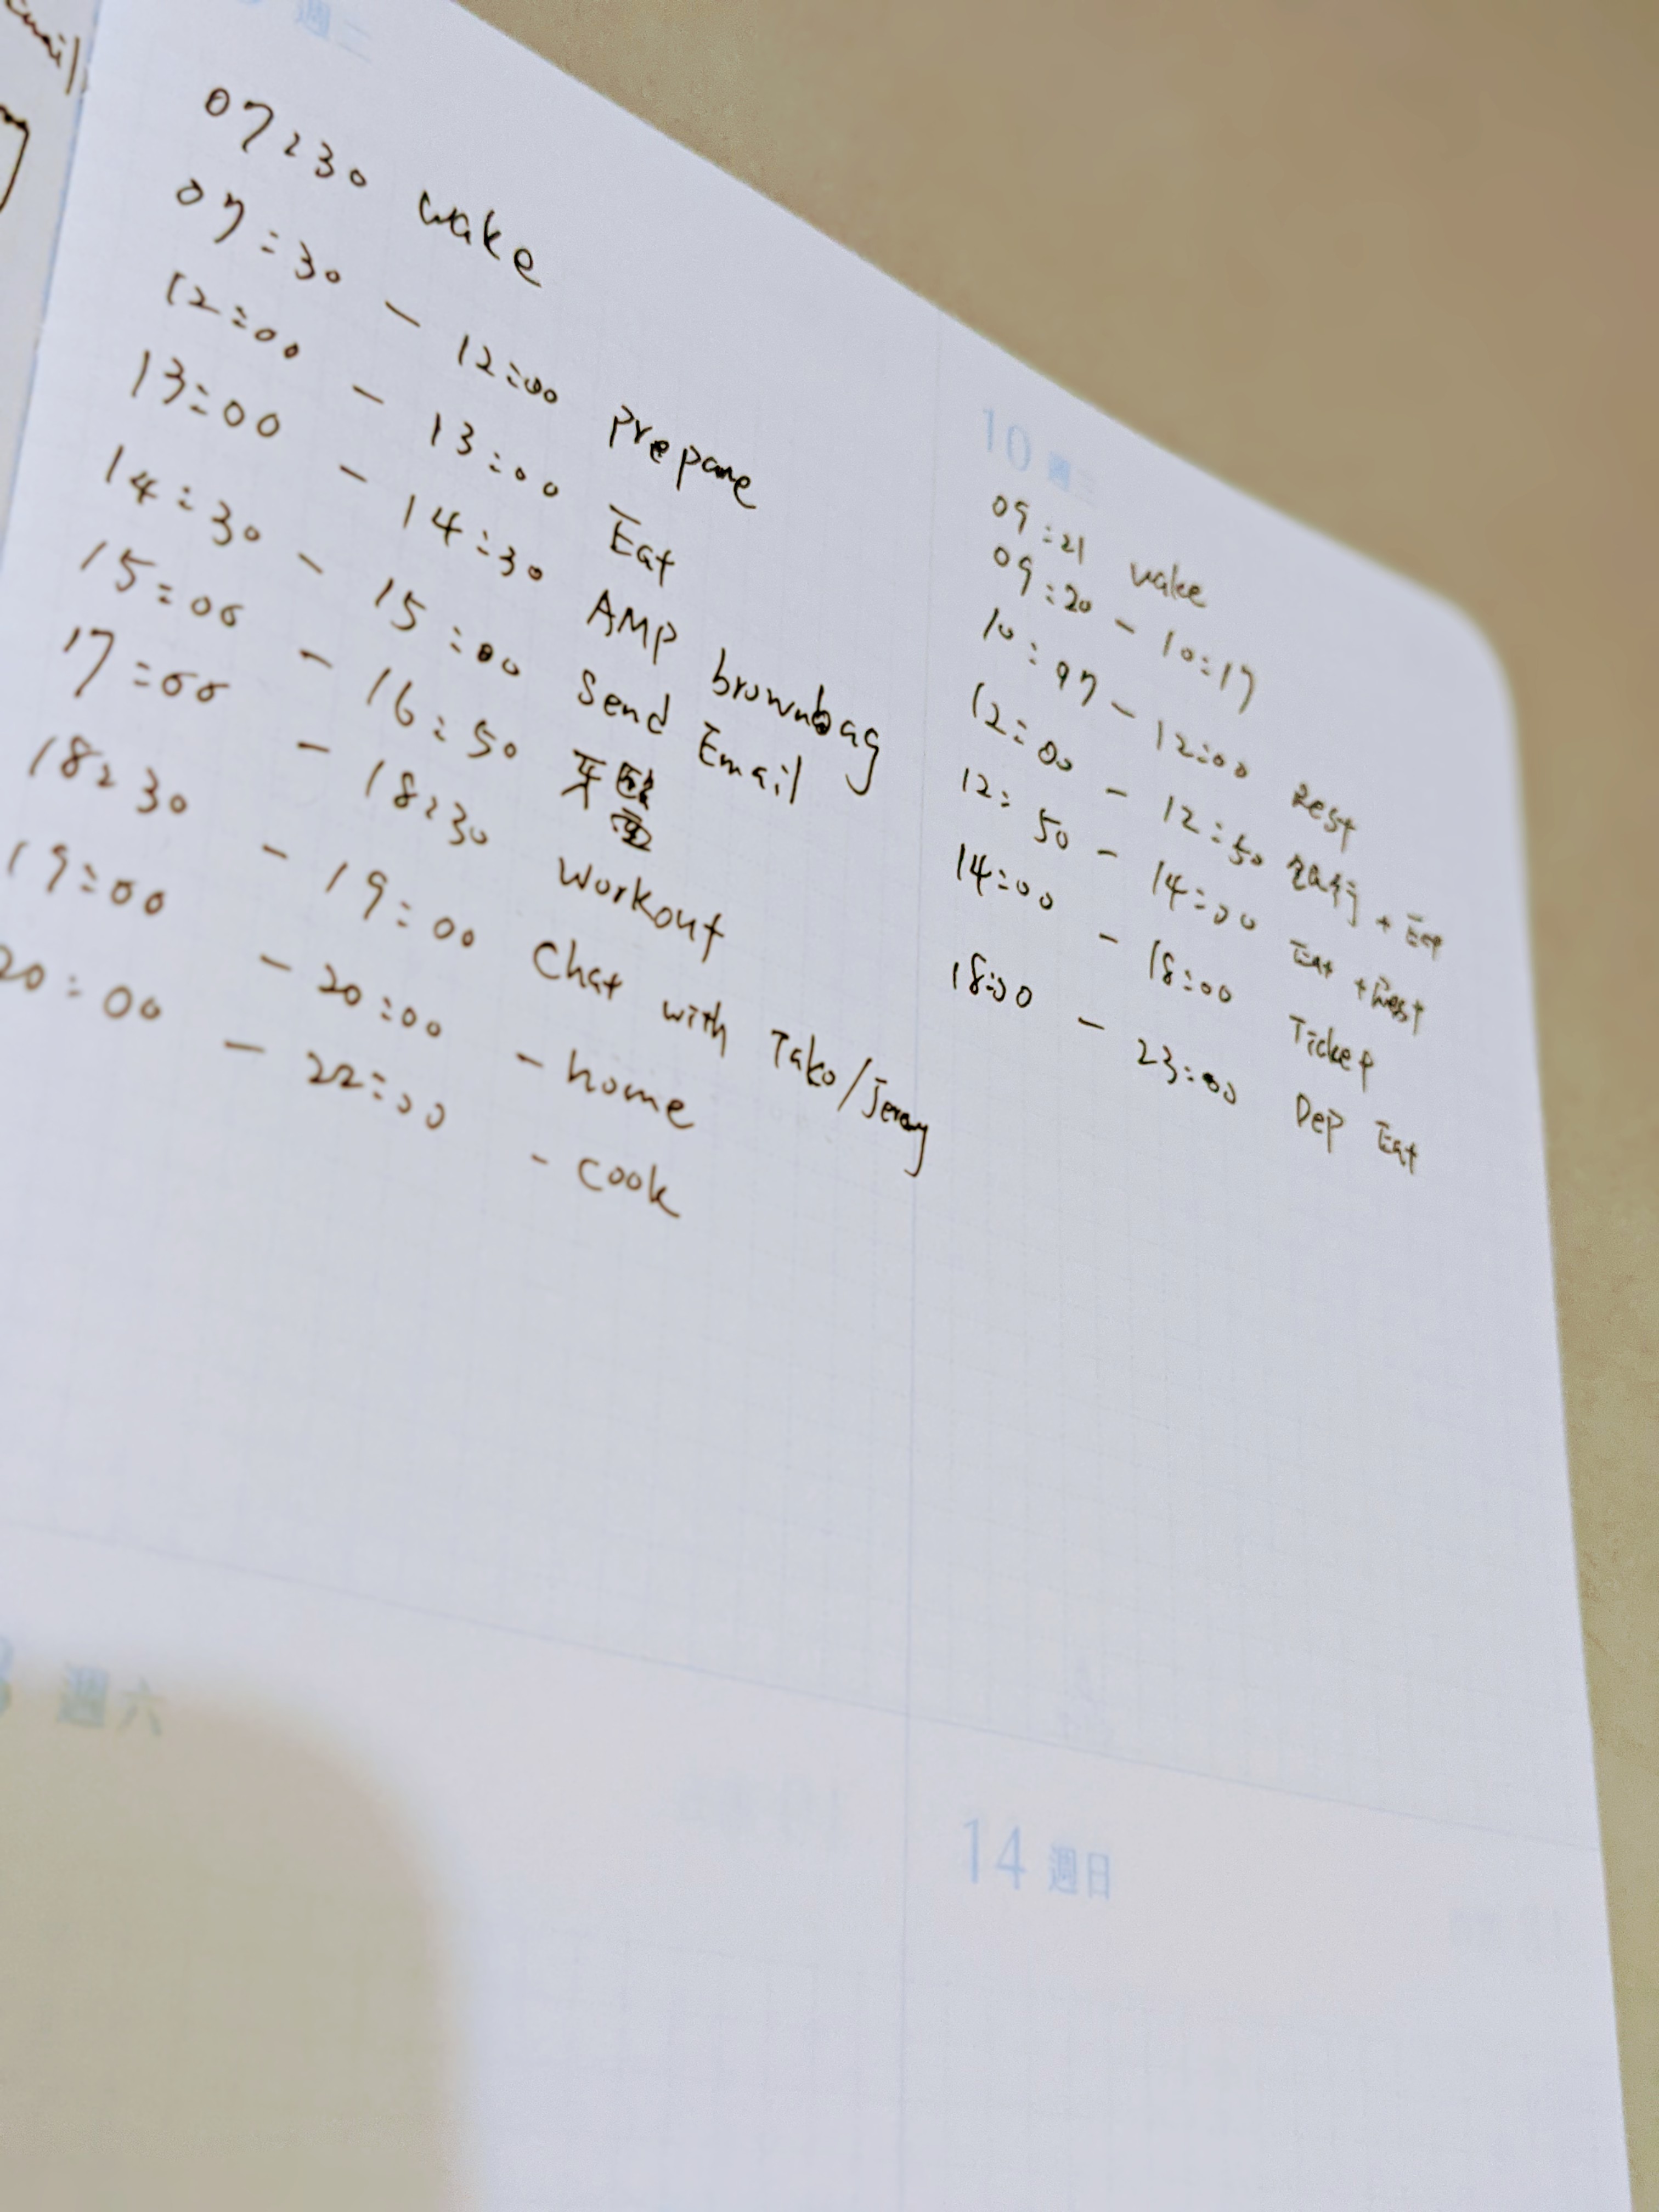 週二
07:30 wake
07:30 - 12:00 prepare
12:00 - 13:00 Eat
13:00 - 14:30 AMP brownbag
14:30 - 15:00 Send Email
15:00 - 16:50 牙醫
17:00 - 18:30 Workout
18:30 - 19:00 Chat with Tako/Jeremy
19:00 - 20:00 - home
20:00 - 22:00 - cook
10 週三
09:21 wake
09:20 - 10:17
10:97 - 12:00 Rest
12:00 - 12:50 + Eat
12:50 - 14:00 Eat + Rest
14:00 - 18:00 Ticket
18:00 - 23:00 Dep Eat
週六
14 週日